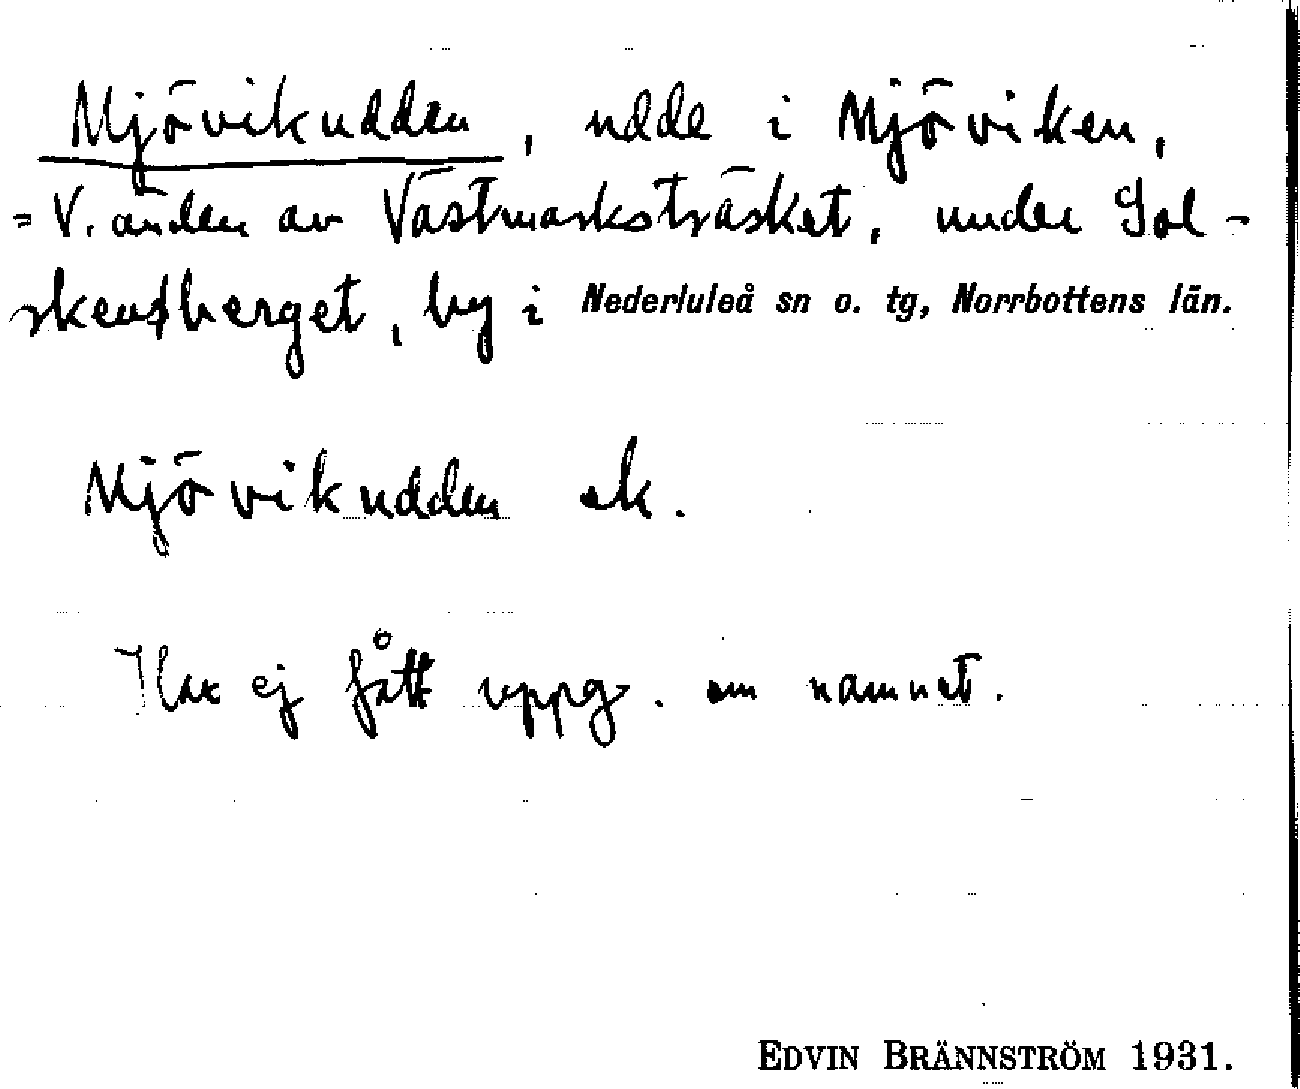 Mjövikudden, udde i Mjöviken,
= V. änden av Västmarksträsket, under Sol-
skensberget, by i Nederluleå sn o. tg, Norrbottens län.
Mjövikudden ek.
Har ej fått uppg. om namnet.
EDVIN BRÄNNSTRÖM 1931.